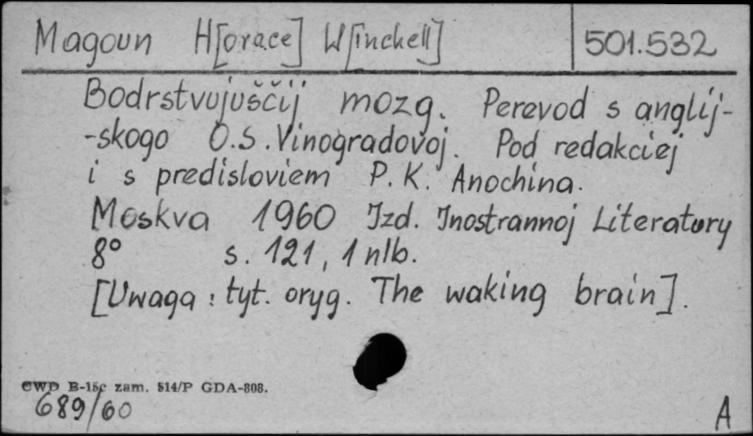 Magoun H[orace] W[inckell] 501.532
Bodrstvujuščij mozg. Perevod s anglij-
-skogo O.S. Vinogradovoj. Pod redakciej
i s predisloviem P. K. Anochina.
Moskva 1960 Izd. Inostrannoj Literatury
8° s. 121, 1 nlb.
[Uwaga : tyt. oryg. The waking brain].
CWD B-15c zam. 514/P GDA-808.
689/60 A